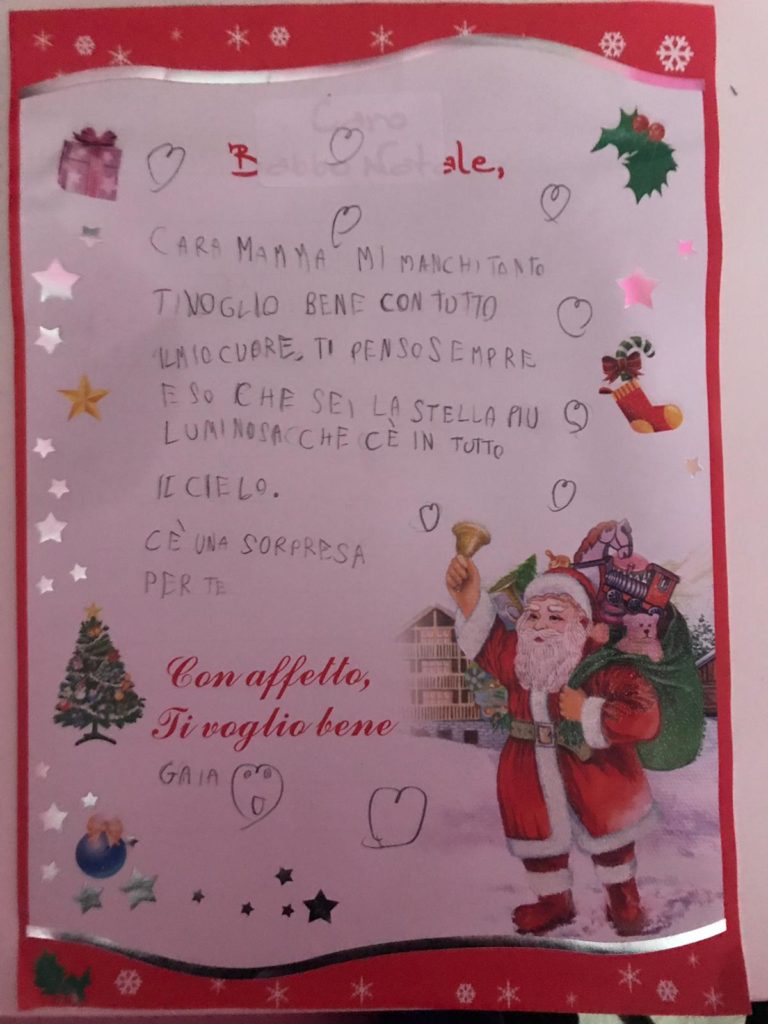 Caro
Babbo Natale,
CARA MAMMA MI MANCHI TANTO
TI VOGLIO BENE CON TUTTO
IL MIO CUORE, TI PENSO SEMPRE
E SO CHE SEI LA STELLA PIU
LUMINOSA CHE C'È IN TUTTO
IL CIELO.
C'È UNA SORPRESA
PER TE
Con affetto,
Ti voglio bene
GAIA